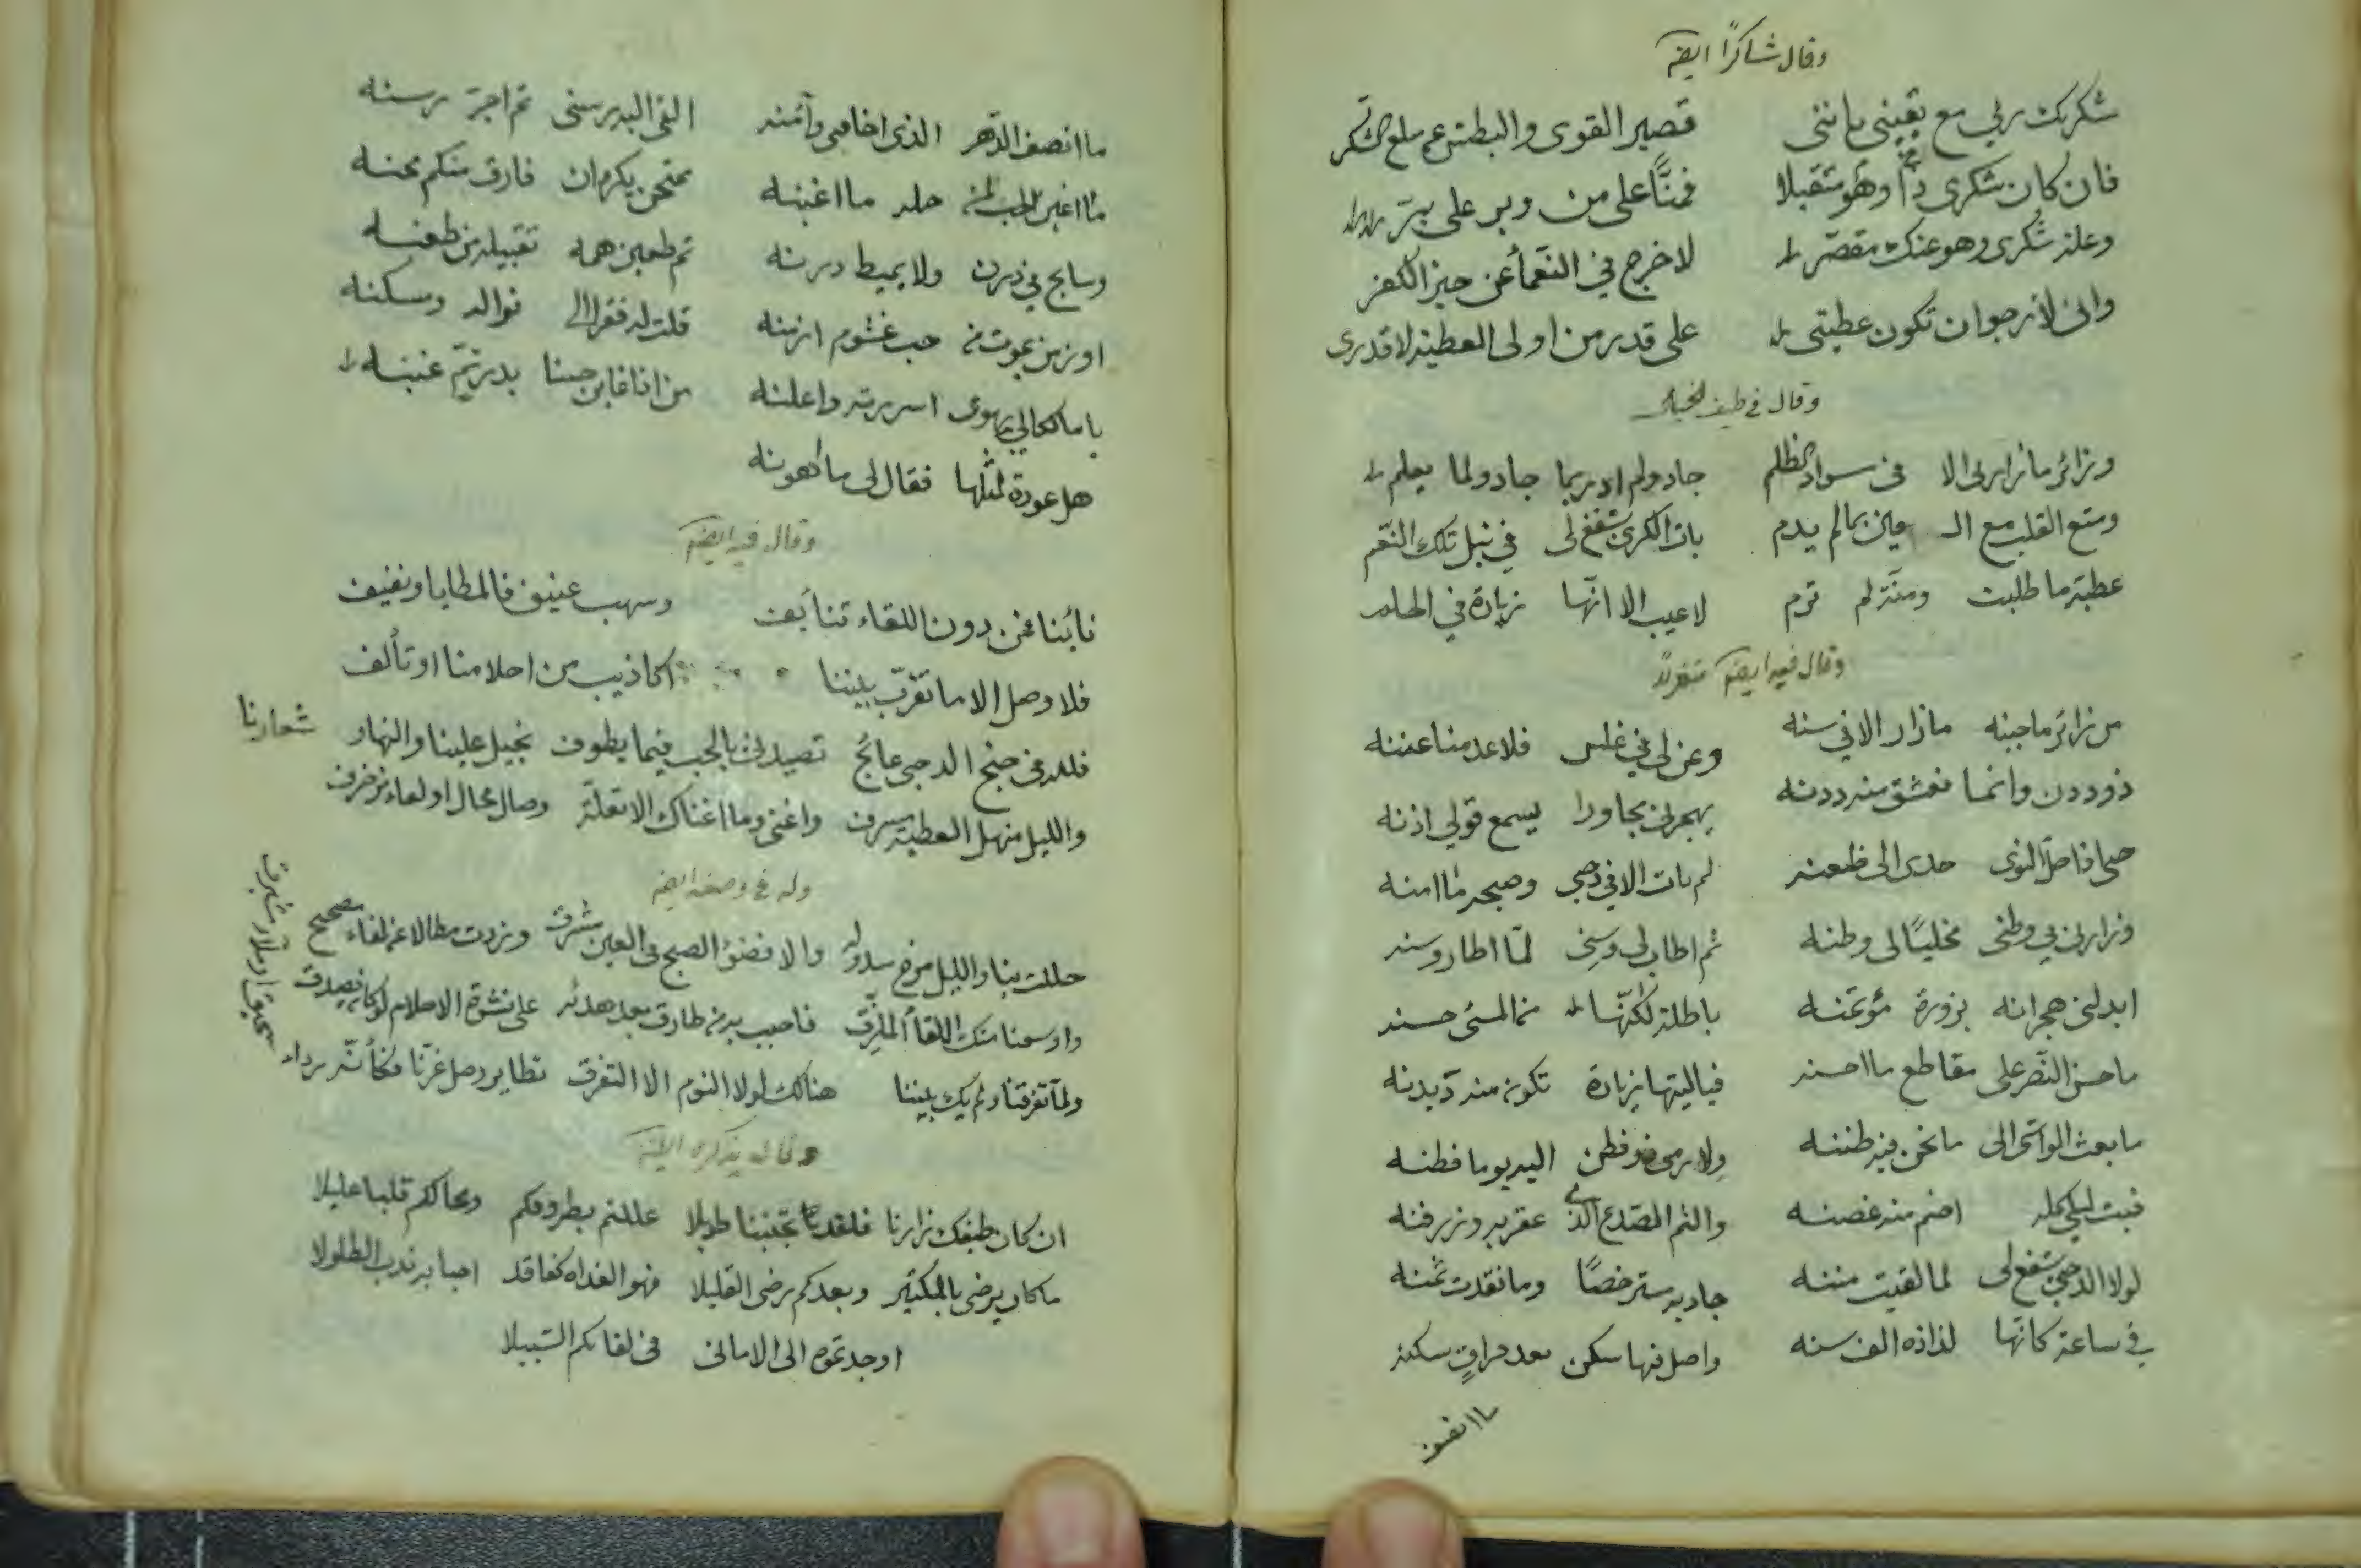 وقال شاكرًا ايضا
شكرتك ربي مع يقيني بانني قصير القوى والبطش عن مبلغ الشكر
فان كان شكري ذا وهو متقبلا فمنًّا على من وبر على بر
وعلة شكرى وهو عنك مقصر لاخرج في النعمأ عن حيز الكفر
وانى لأرجو ان تكون عطيتى على قدر من اولى العطية لا قدرى
وقال في طيف الخيال
وزائر ما زارنى الا فى سواد الظلم جاد ولم ادر بما جاد ولما يعلم
ومتع القلب مع الـ عين بما لم يدم بات الكرى يشفع لى في نيل تلك النعم
عطية ما طلبت ومنة لم ترم لا عيب الا انها زيارة في الحلم
وقال فيه ايضا متغزلاً
من زائر ما جبنه مازار الا في سنه وعن لى في غلس فلا عدمنا عننه
ذو ددن وانما نعشق منه ددنه يهجرنى مجاورا يسمع قولي اذنه
حتى اذا النوى حدى الى ظعنه لم يات الا في دجى وصبحه ما امنه
فزارنى في وطنى مخليًا لى وطنه ثم اطار لى وسنى لما اطار وسنه
ابدلنى هجرانه بزورة مؤتمنه باطلة لكنها من المسئ حسنه
ما حسن النصر على مقاطع ما احسنه فيا ليتها زيارة تكون منه ديدنه
ما بعث الواشى الى ما نحن فيه ظننه ولا رمى ذو فطن اليه يوما فطنه
فبت ليلي كله اضم منه غصنه والثم الصدغ الذي عقربه وزرفنه
لولا الدجى يشفع لى لما لقيت مننه جاد به مسترخصًا وما نقدت ثمنه
في ساعة كانها لذاذه الف سنه واصل فيها سكن بعد فراق سكنه
ما انصف
ما انصف الدهر الذى اخافنى وآمنه القى اليه رسنى ثم اجر رسنه
ما اغبن المحب له ما اغبنه ممتحن يكره ان فارق منكم محنه
وسابح في درن ولا يميط درنه ثم ظعين همه تقبيله من ظعنه
او زمن يموت من حب غشوم ازمنه قلت له فقرا الى نواله ومسكنه
يا مالكا لي بهوى اسررته واعلنه من انا فابن حسنا بدر تم غننه
هل عودة لمثلها فقال لى ما اهونه
وقال فيه ايضا
نأينا فمن دون اللقاء تنائف وسهب عنيف فالمطايا ونفنف
فلا وصل الا ما تقرب بيننا اكاذيب من احلامنا او تألف
فلله فى جنح الدجى عائج تصيدنى بالحب فيما يطوف بخيل علينا والنهار شعارنا
والليل منهل العطية مسرف واغنى وما اغناك الا تعلة وصال محال او لقاء مزخرف
وله في وصفه ايضا
حللت بنا والليل مرخ سدوله والا فضوء الصبح فى العين مشرق وزرت مطالا عن لقاء مصحح
واوسعنا منك اللقأ المنمق فاحبب به من طارق بعد هدئه على نشوة الاحلام لو كان يصدق
ولما تفرقنا ولم يك بيننا هنالك لولا النوم الا التفرق تطاير وصل غرنا فكأنه رداء
سحيق او ملاء مشبرق
وقال يذكره ايضا
ان كان طيفك زارنا فلقد تجنبنا طويلا عللتم بطروقكم ومحالكم قلبا عليلا
ما كان يرضى بالكثير وبعدكم يرضى القليلا فهو الغداة كفاقد احبابه ندب الطلولا
اوجدتموه الى الامانى فى لقائكم السبيلا